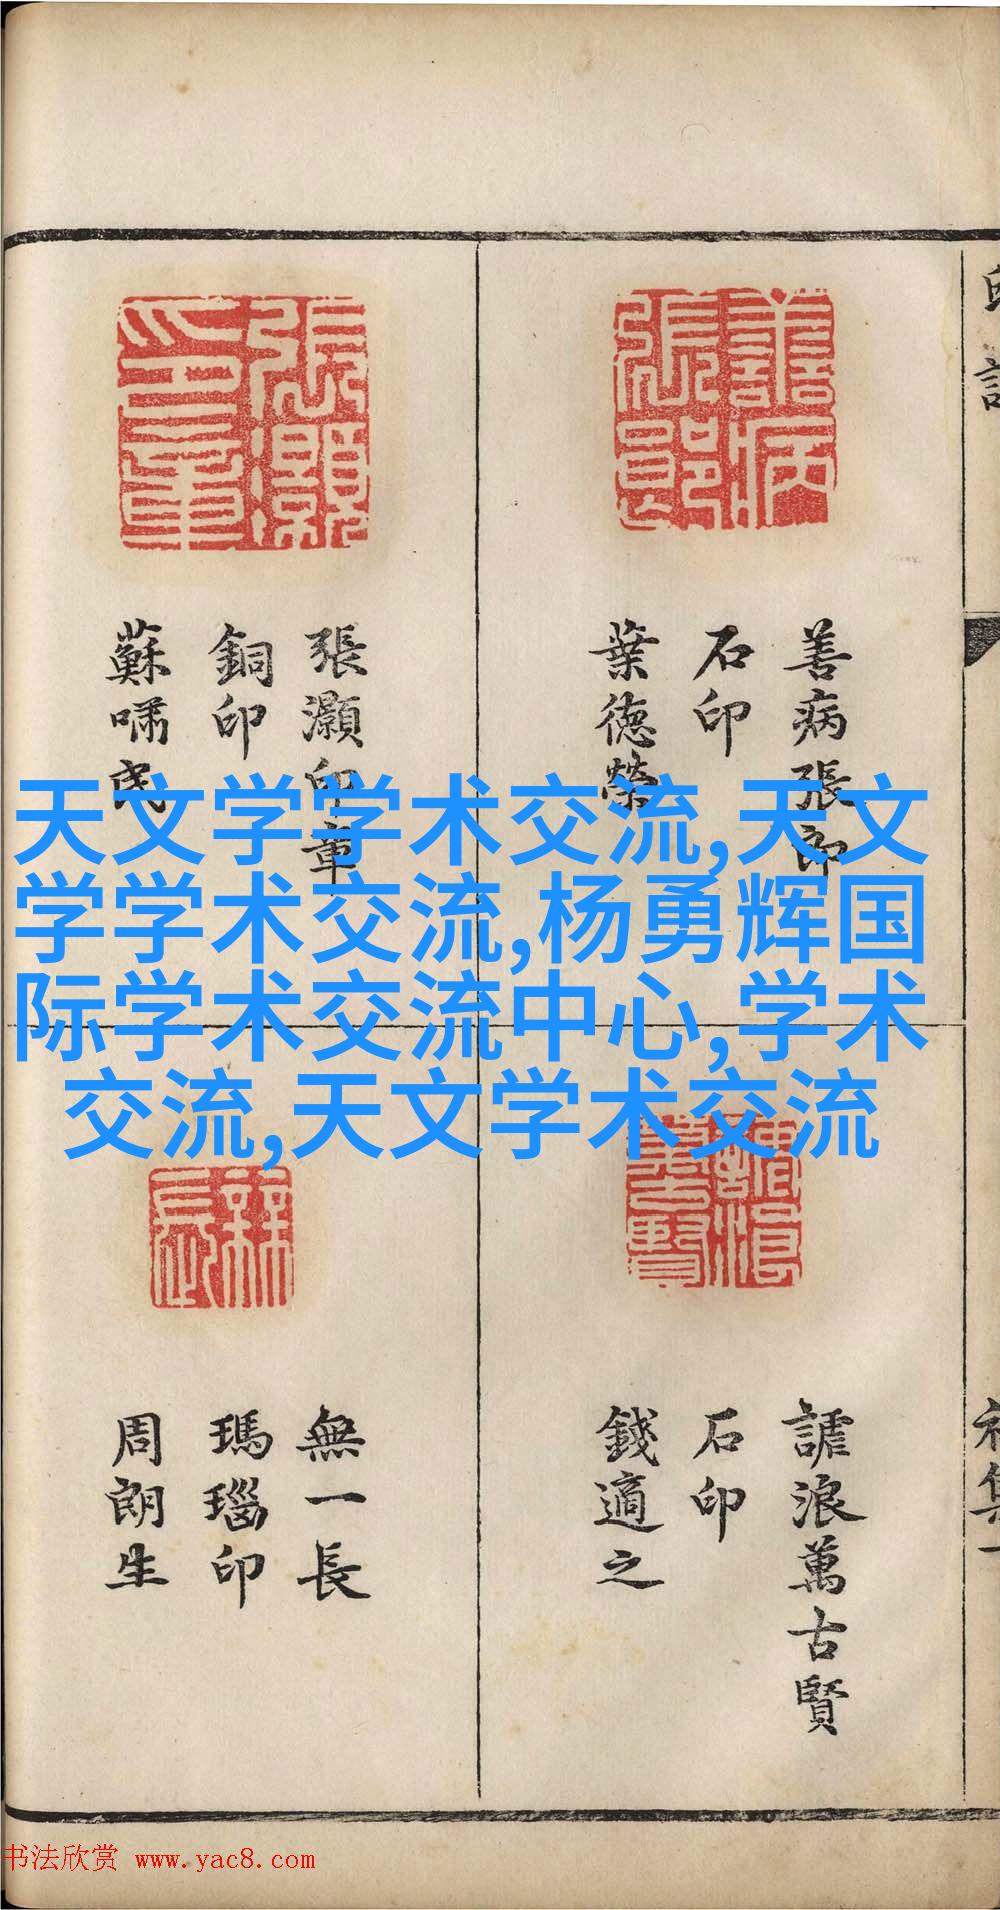 善病張郎
石印
葉德榮
張灝印章
銅印
蘇嘯民
天文学学术交流,天文
学学术交流,杨勇辉国
际学术交流中心,学术
交流,天文学术交流
謔浪萬古賢
石印
錢適之
無一長
瑪瑙印
周朗生
初集一
书法欣赏 www.yac8.com